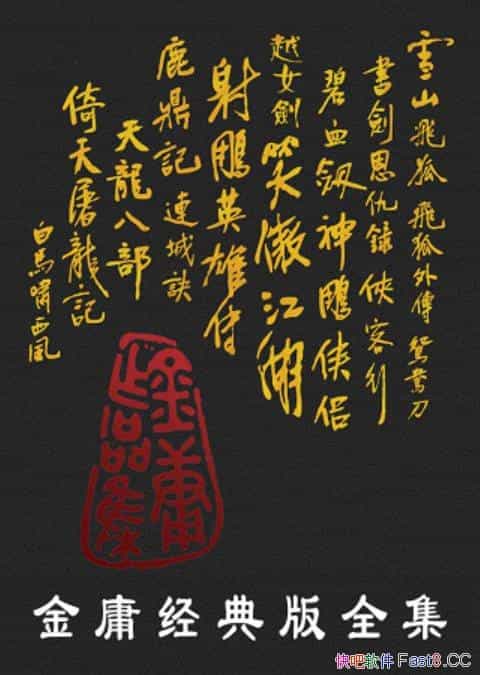 雪山飛狐 飛狐外傳 鴛鴦刀
書劍恩仇錄 俠客行
碧血劍 神鵰俠侶
越女劍 笑傲江湖
射鵰英雄傳
鹿鼎記 連城訣
天龍八部
倚天屠龍記
白馬嘯西風
金庸
作品集
金庸经典版全集
快吧软件 Fast8.CC